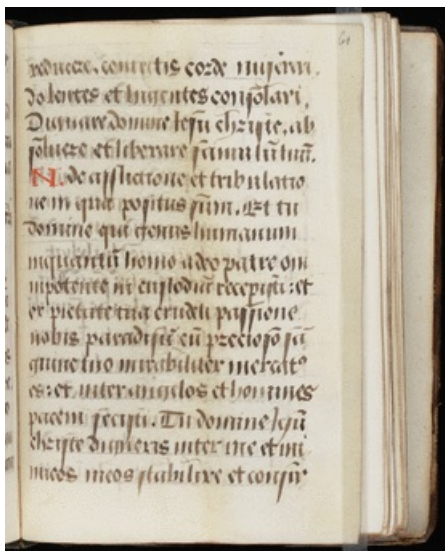 reducere. contritis corde miserere.
dolentes et lugentes consolari.
Dignare domine Iesu christe. ab
soluere et liberare famulū tuū.
N. de afflictione et tribulatio
nem qua positus sum. Et tu
domine qui genus humanum
inquantū homo a deo patre om
nipotente in custodia recepisti: et
ex pietate tua crudeli passione
nobis paradisū cū precioso sā
guine tuo mirabiliter mercatꝰ
es: et inter angelos et homines
pacem fecisti. Tu domine Iesū
christe digneris inter me et ini
micos meos stabilire et confir